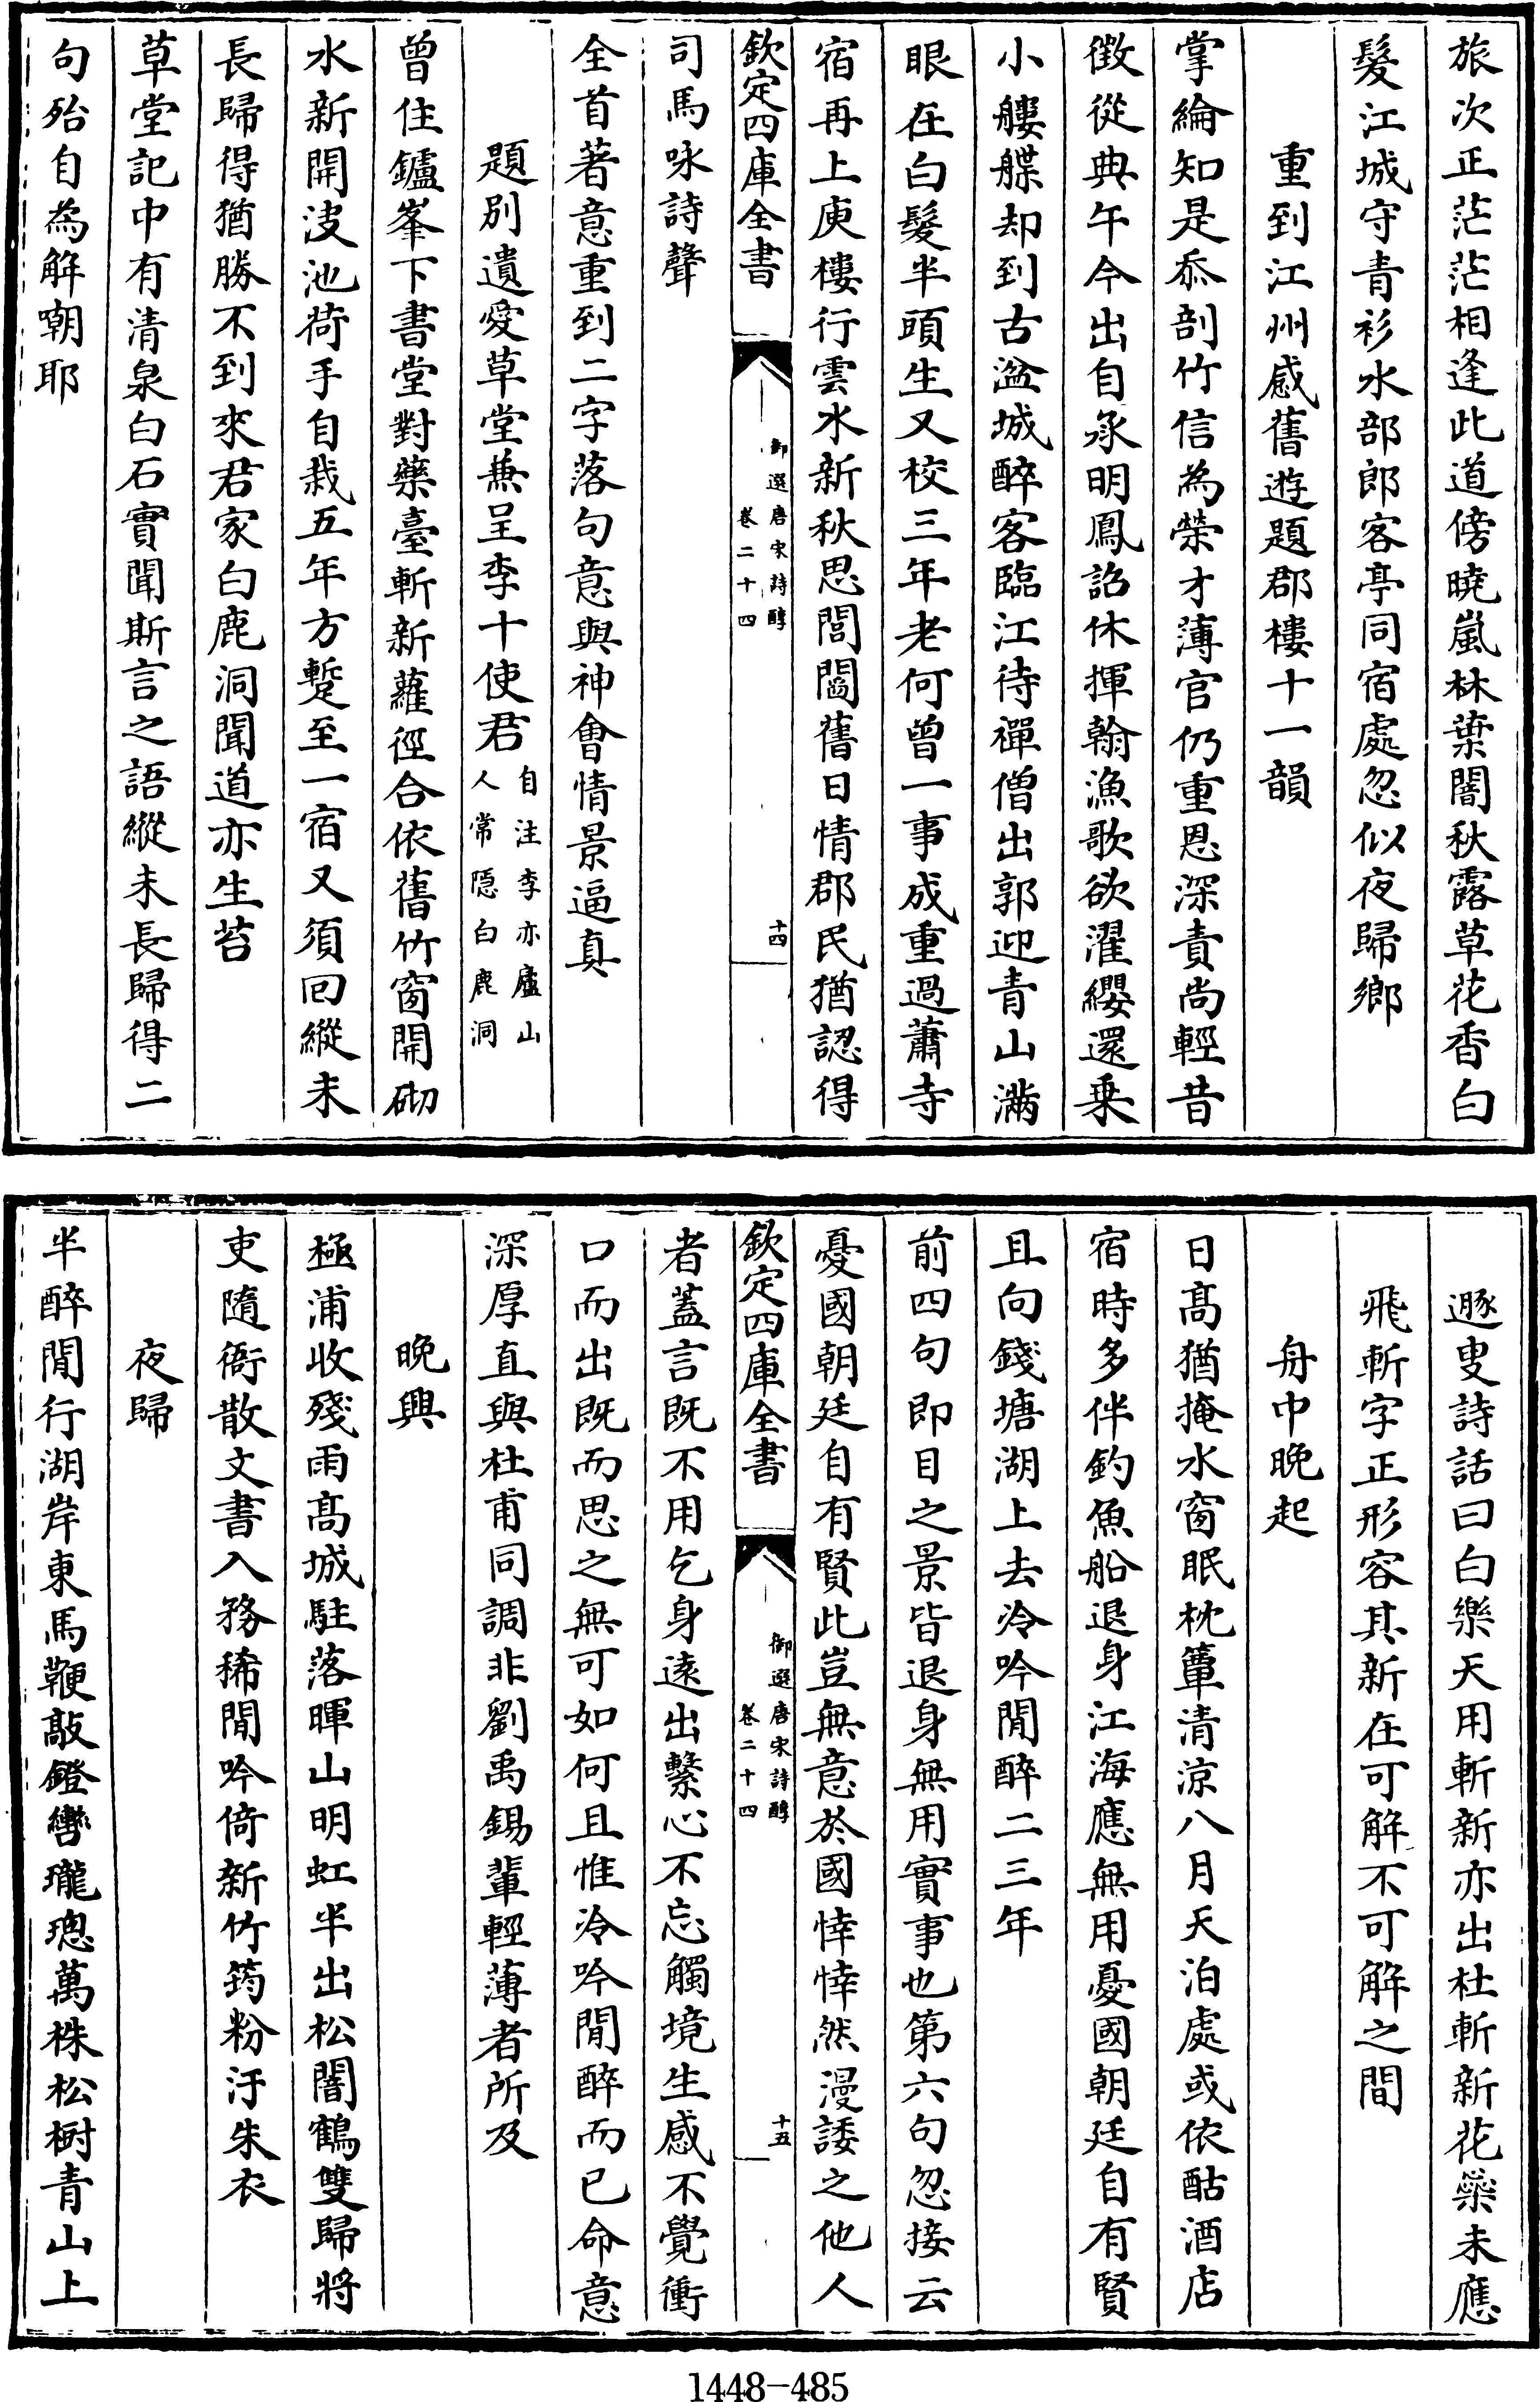 旅次正茫茫相逢此道傍曉嵐林葉闇秋露草花香白
髮江城守青衫水部郎客亭同宿處忽似夜歸鄉
重到江州感舊遊題郡樓十一韻
掌綸知是忝剖竹信為榮才薄官仍重恩深責尚輕昔
徴從典午今出自承明鳳詔休揮翰漁歌欲濯纓還乗
小艛艓却到古湓城醉客臨江待禪僧出郭迎青山滿
眼在白髮半頭生又校三年老何曾一事成重過蕭寺
宿再上庾樓行雲水新秋思閭閻舊日情郡民猶認得
欽定四庫全書
御選唐宋詩醇
卷二十四
十四
司馬咏詩聲
全首著意重到二字落句意與神會情景逼真
題別遺愛草堂兼呈李十使君
自注李亦廬山
人常隠白鹿洞
曾住鑪峯下書堂對藥臺斬新蘿徑合依舊竹窗開砌
水新開決池荷手自栽五年方蹔至一宿又須回縱未
長歸得猶勝不到來君家白鹿洞聞道亦生苔
草堂記中有清泉白石實聞斯言之語縱未長歸得二
句殆自為解嘲耶
遯叟詩話曰白樂天用斬新亦出杜斬新花蘂未應
飛斬字正形容其新在可解不可解之間
舟中晚起
日髙猶掩水窗眠枕簟清涼八月天泊處或依酤酒店
宿時多伴釣魚船退身江海應無用憂國朝廷自有賢
且向錢塘湖上去冷吟閒醉二三年
前四句即目之景皆退身無用實事也第六句忽接云
憂國朝廷自有賢此豈無意於國悻悻然漫諉之他人
欽定四庫全書
御選唐宋詩醇
卷二十四
十五
者蓋言既不用乞身遠出繫心不忘觸境生感不覺衝
口而出既而思之無可如何且惟冷吟閒醉而已命意
深厚直與杜甫同調非劉禹錫輩輕薄者所及
晚興
極浦收殘雨髙城駐落暉山明虹半出松闇鶴雙歸將
吏隨衙散文書入務稀閒吟倚新竹筠粉汙朱衣
夜歸
半醉閒行湖岸東馬鞭敲鐙轡瓏璁萬株松樹青山上
1448-485